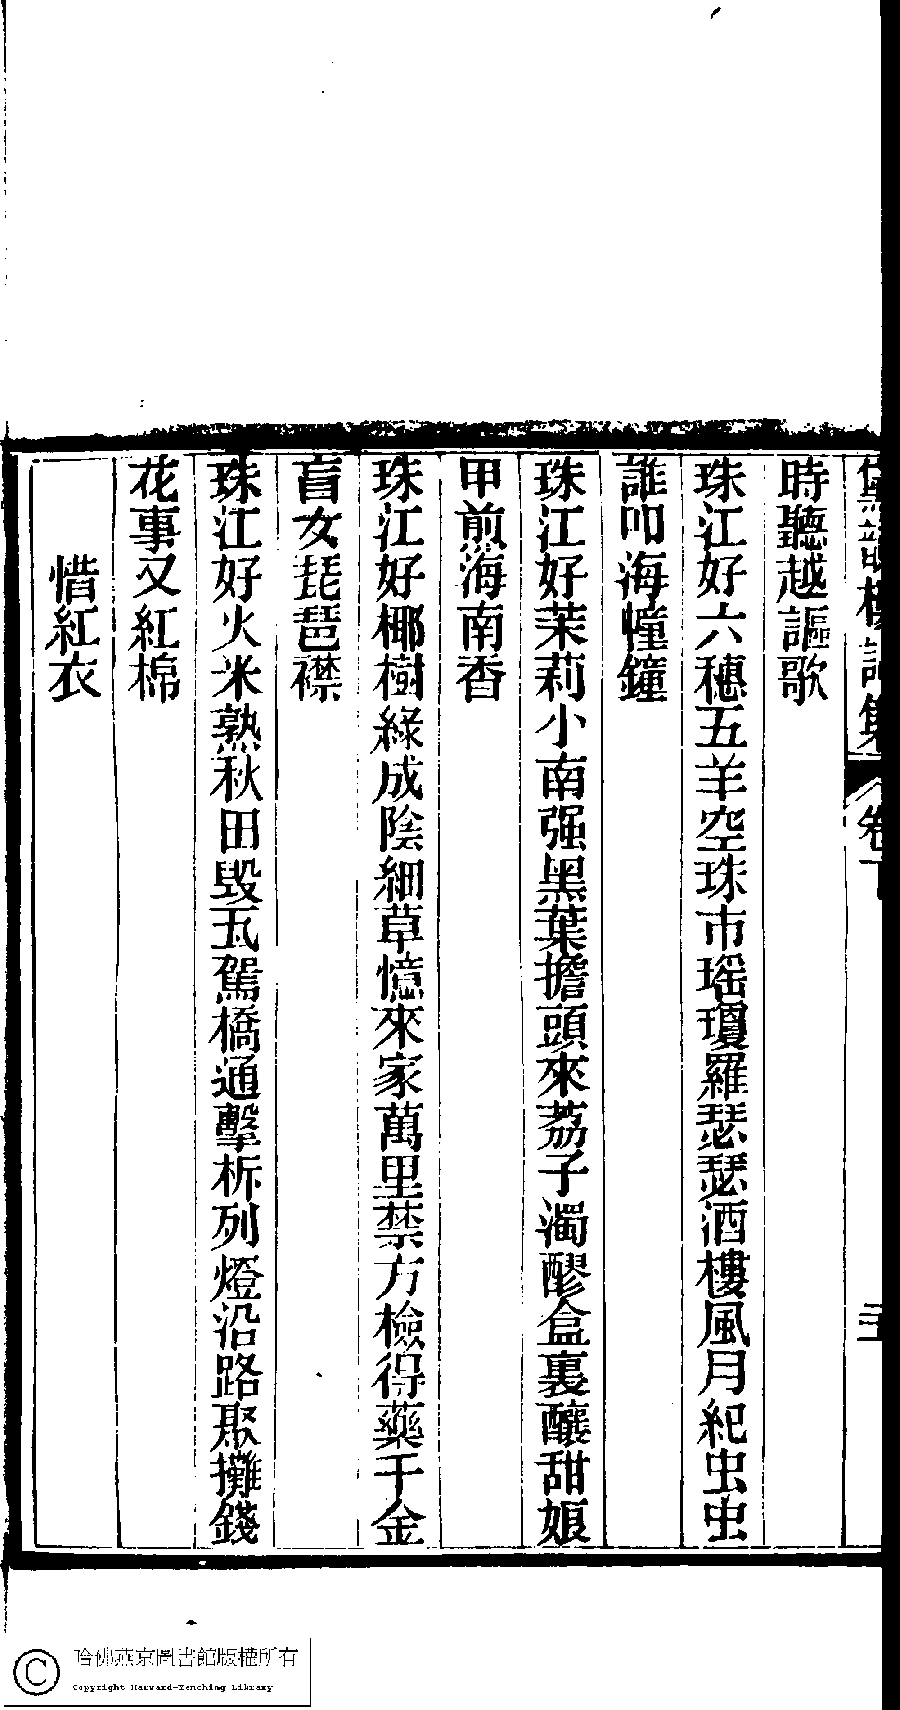 時聽越謳歌
珠江好六穗五羊空珠市瑶瓊羅瑟瑟酒樓風月紀虫虫
誰叩海幢鐘
珠江好茉莉小南强黑葉擔頭來荔子濁醪盒裏釀甜娘
甲煎海南香
珠江好椰樹綠成陰細草憶來家萬里禁方檢得藥千金
盲女琵琶襟
珠江好火米熟秋田毁瓦駕橋通擊柝列燈沿路聚攤錢
花事又紅棉
惜紅衣
哈佛燕京圖書館版權所有
Copyright Harvard-Yenching Library